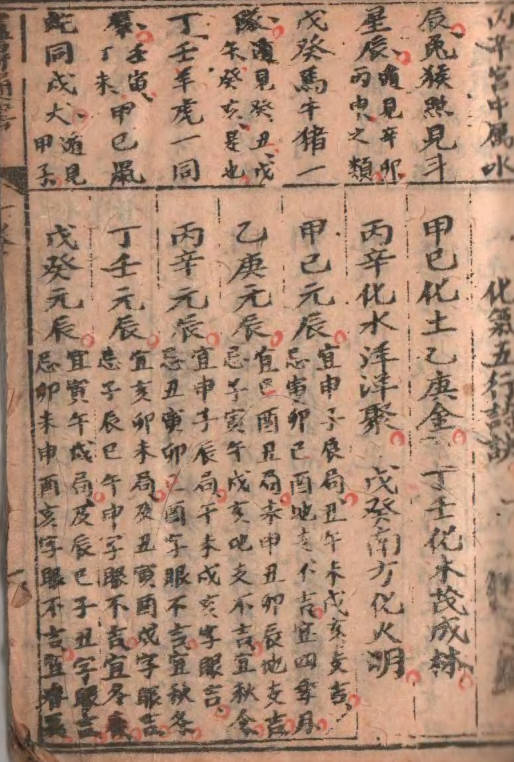 丙辛宮中属水
辰兎猴㸃見斗
星辰遁見辛卯
丙申之類
戊癸馬牛猪一
隊遁見癸丑戊
午癸亥是也
丁壬羊虎一同
羣壬寅丁未
甲巳鼠
蛇同戍犬遁見
甲子
化氣五行詩訣
甲巳化土乙庚金 丁壬化木茂成林
丙辛化水洋洋聚 戊癸南方化火明
甲己元辰 宜申子辰局丑午未戊亥支吉
忌寅卯己酉地支不吉宜四季月
乙庚元辰 宜巳酉丑局未申丑卯辰地支吉
忌子寅午戍亥地支不吉宜秋令
丙辛元辰 宜申子辰局午未戍亥字眼吉
忌丑寅卯酉字眼不吉宜秋冬
丁壬元辰 宜亥卯未局及丑寅酉戍字眼吉
忌子辰巳午申字眼不吉宜冬春
戊癸元辰 宜寅午戍局及辰巳子丑字眼吉
忌卯未申酉亥字眼不吉宜春夏